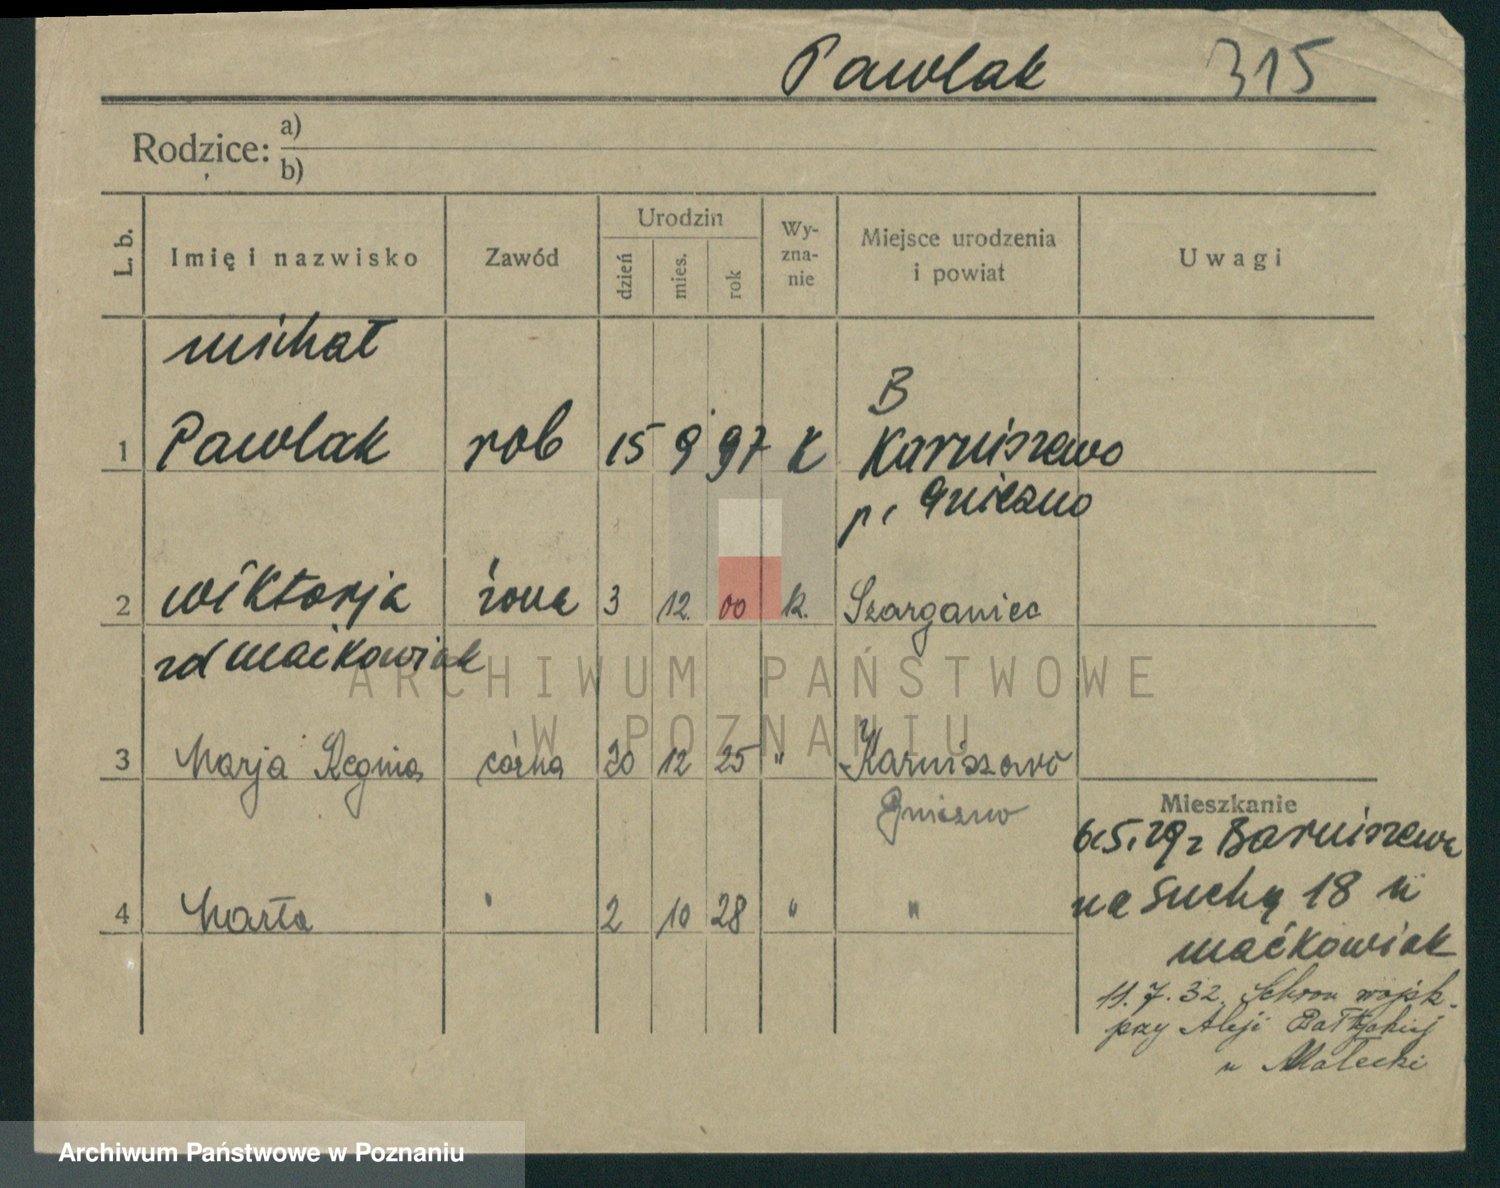 Pawlak 315
Rodzice: a)
b)
L. b. Imię i nazwisko Zawód Urodzin dzień mies. rok Wy-zna-nie Miejsce urodzenia i powiat Uwagi
michał
B
1 Pawlak rob 15 9 97 K Karniszewo
p. Gniezno
2 wiktorja żona 3 12. 00 k. Szarganiec
zd maćkowiak
ARCHIWUM PAŃSTWOWE
W POZNANIU
3 Marja Regina córka 30 12 25 " Karniszewo
Gniezno
4 Marta " 2 10 28 " "
Mieszkanie
6.5.29 z Karniszewa
na Suchą 18 u
maćkowiak
11.7.32. Schron wojsk.
przy Aleji Bałtyckiej
u Małecki
Archiwum Państwowe w Poznaniu